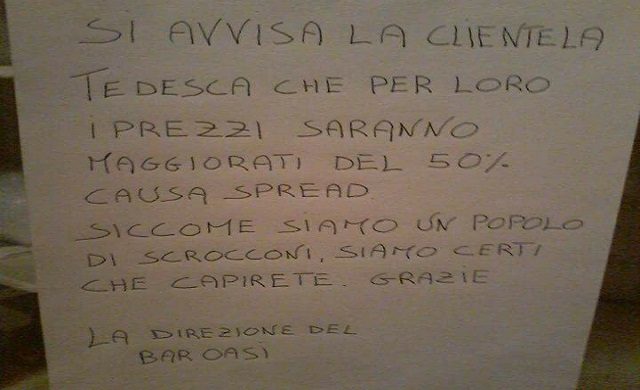 SI AVVISA LA CLIENTELA
TEDESCA CHE PER LORO
I PREZZI SARANNO
MAGGIORATI DEL 50%
CAUSA SPREAD.
SICCOME SIAMO UN POPOLO
DI SCROCCONI, SIAMO CERTI
CHE CAPIRETE. GRAZIE
LA DIREZIONE DEL
BAR OASI